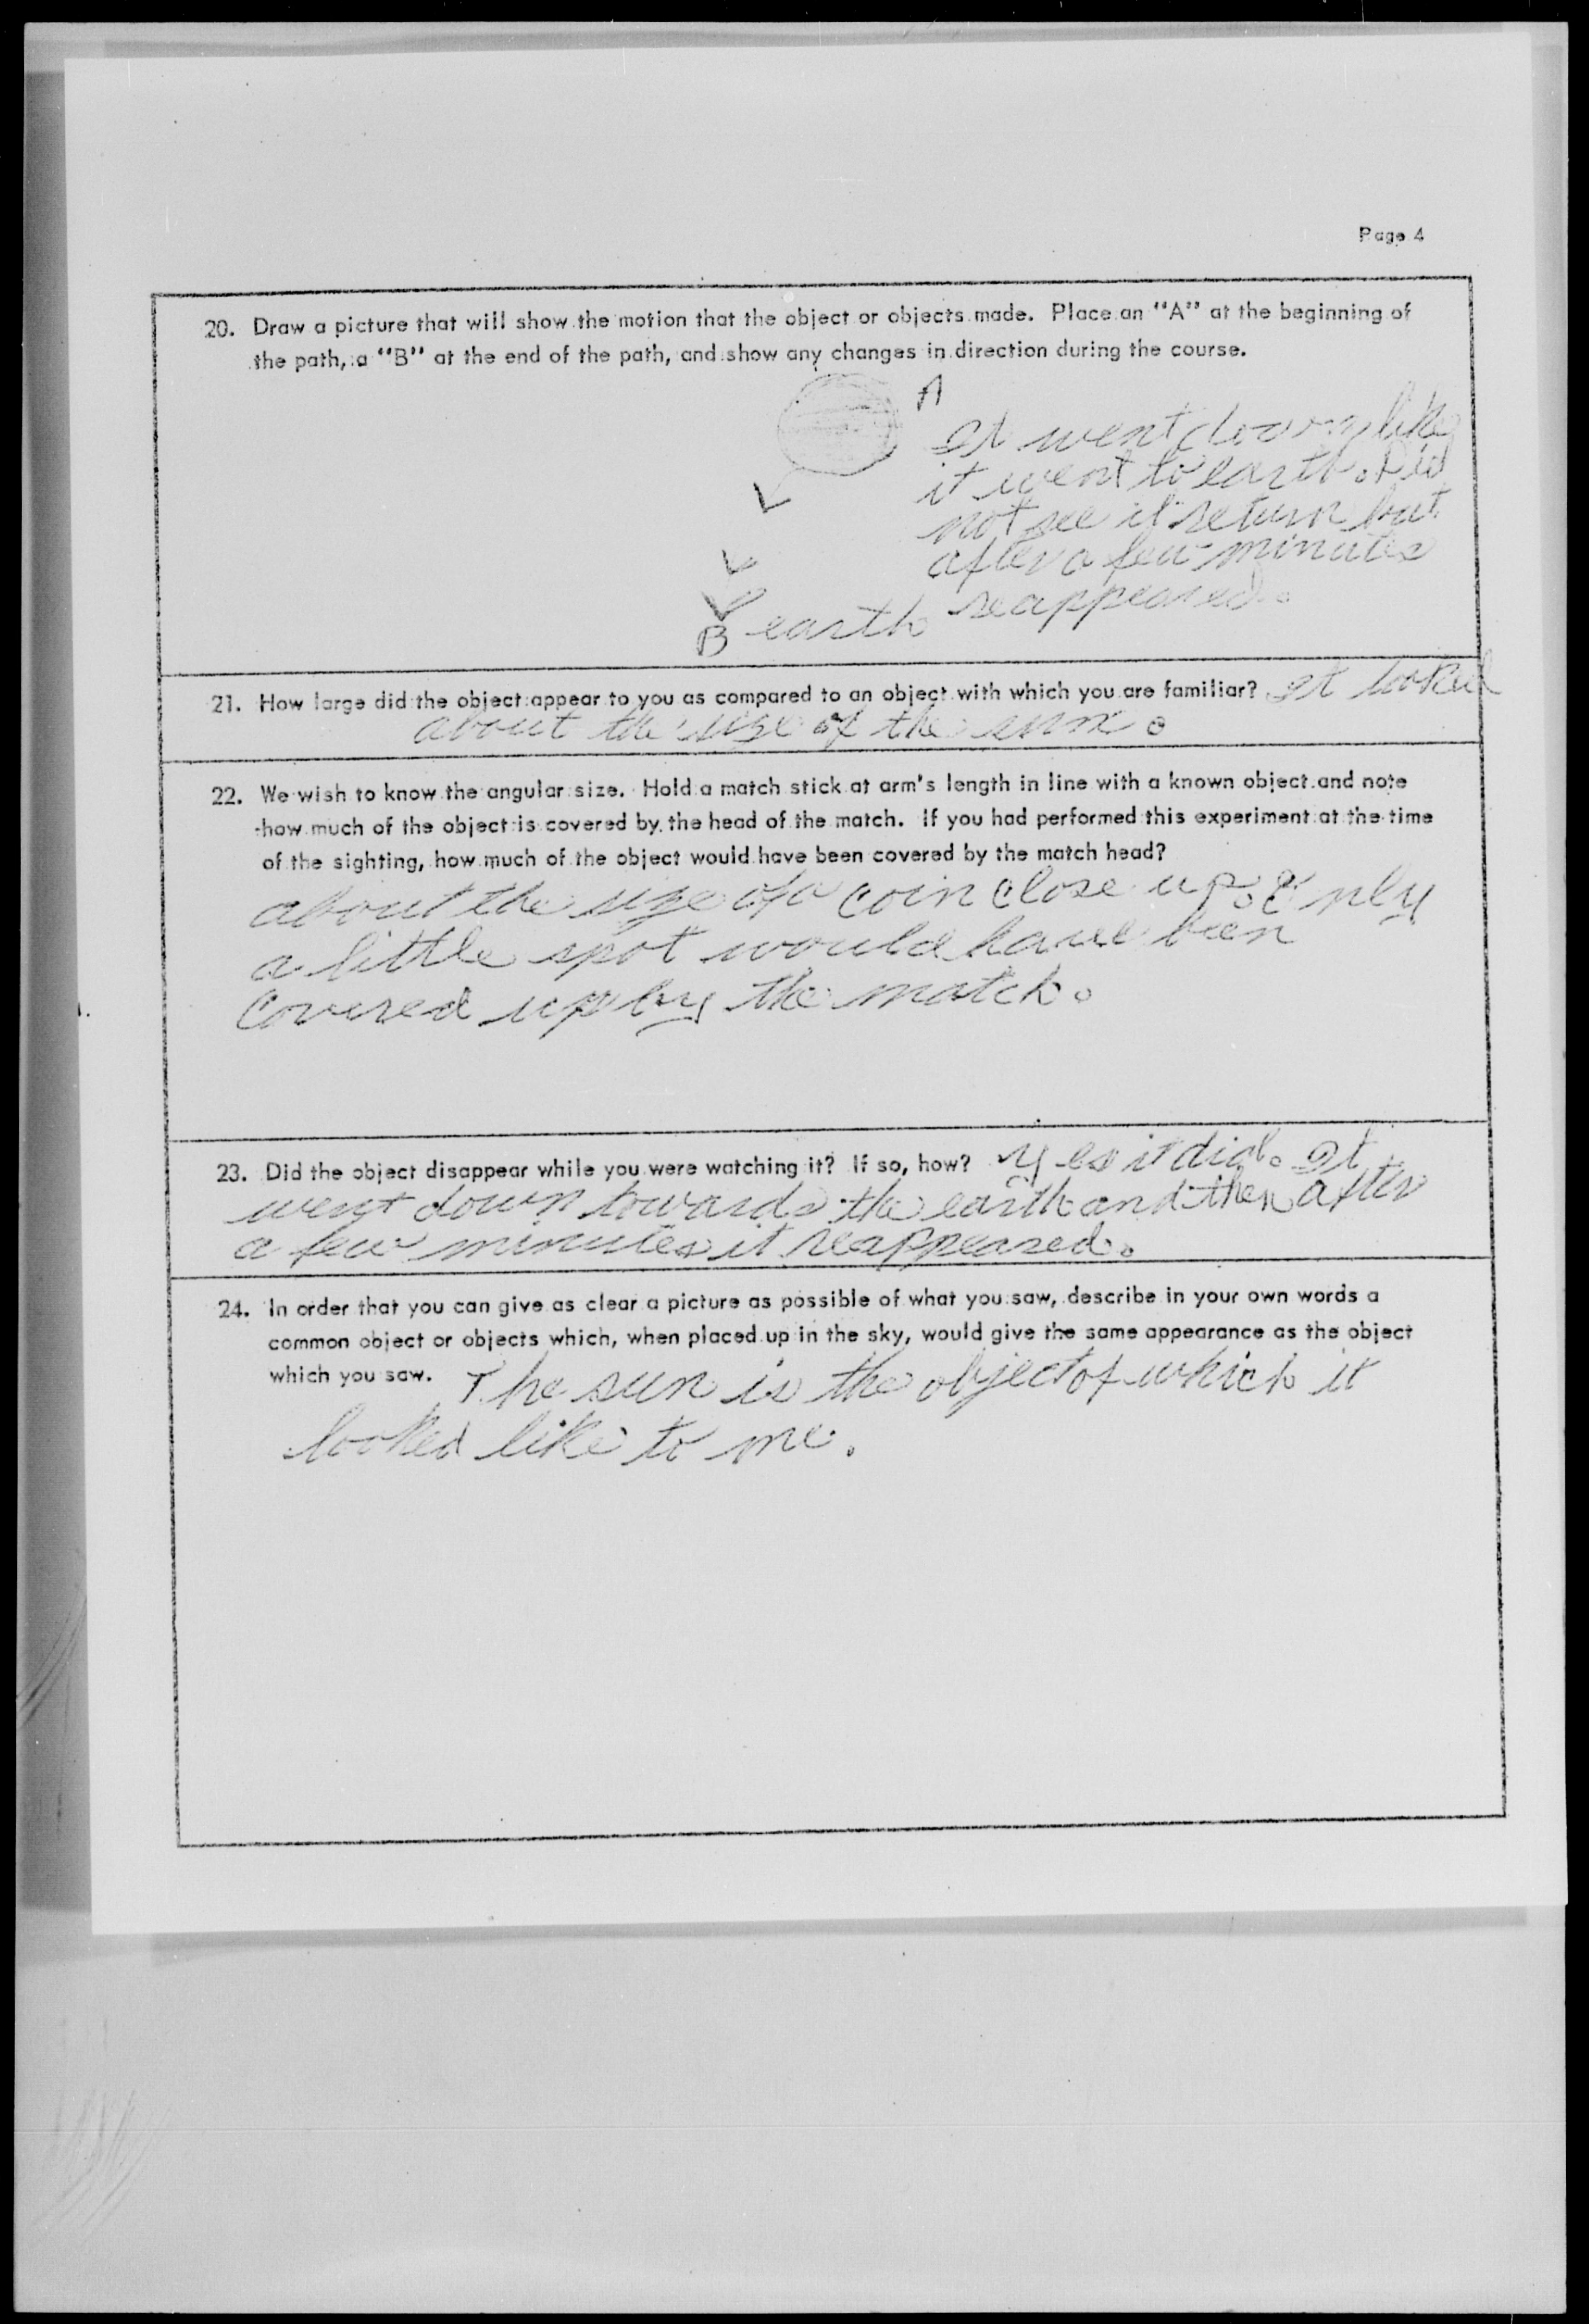 Page 4
20. Draw a picture that will show the motion that the object or objects made. Place an "A" at the beginning of
the path, a "B" at the end of the path, and show any changes in direction during the course.
A
It went down like
it went to earth. Did
not see it return but
after a few minutes
reappeared.
B earth
21. How large did the object appear to you as compared to an object with which you are familiar? It looked
about the size of the sun.
22. We wish to know the angular size. Hold a match stick at arm's length in line with a known object and note
how much of the object is covered by the head of the match. If you had performed this experiment at the time
of the sighting, how much of the object would have been covered by the match head?
about the size of a coin close up. Only
a little spot would have been
covered up by the match.
23. Did the object disappear while you were watching it? If so, how? Yes it did. It
went down towards the earth and then after
a few minutes it reappeared.
24. In order that you can give as clear a picture as possible of what you saw, describe in your own words a
common object or objects which, when placed up in the sky, would give the same appearance as the object
which you saw. The sun is the object of which it
looked like to me.